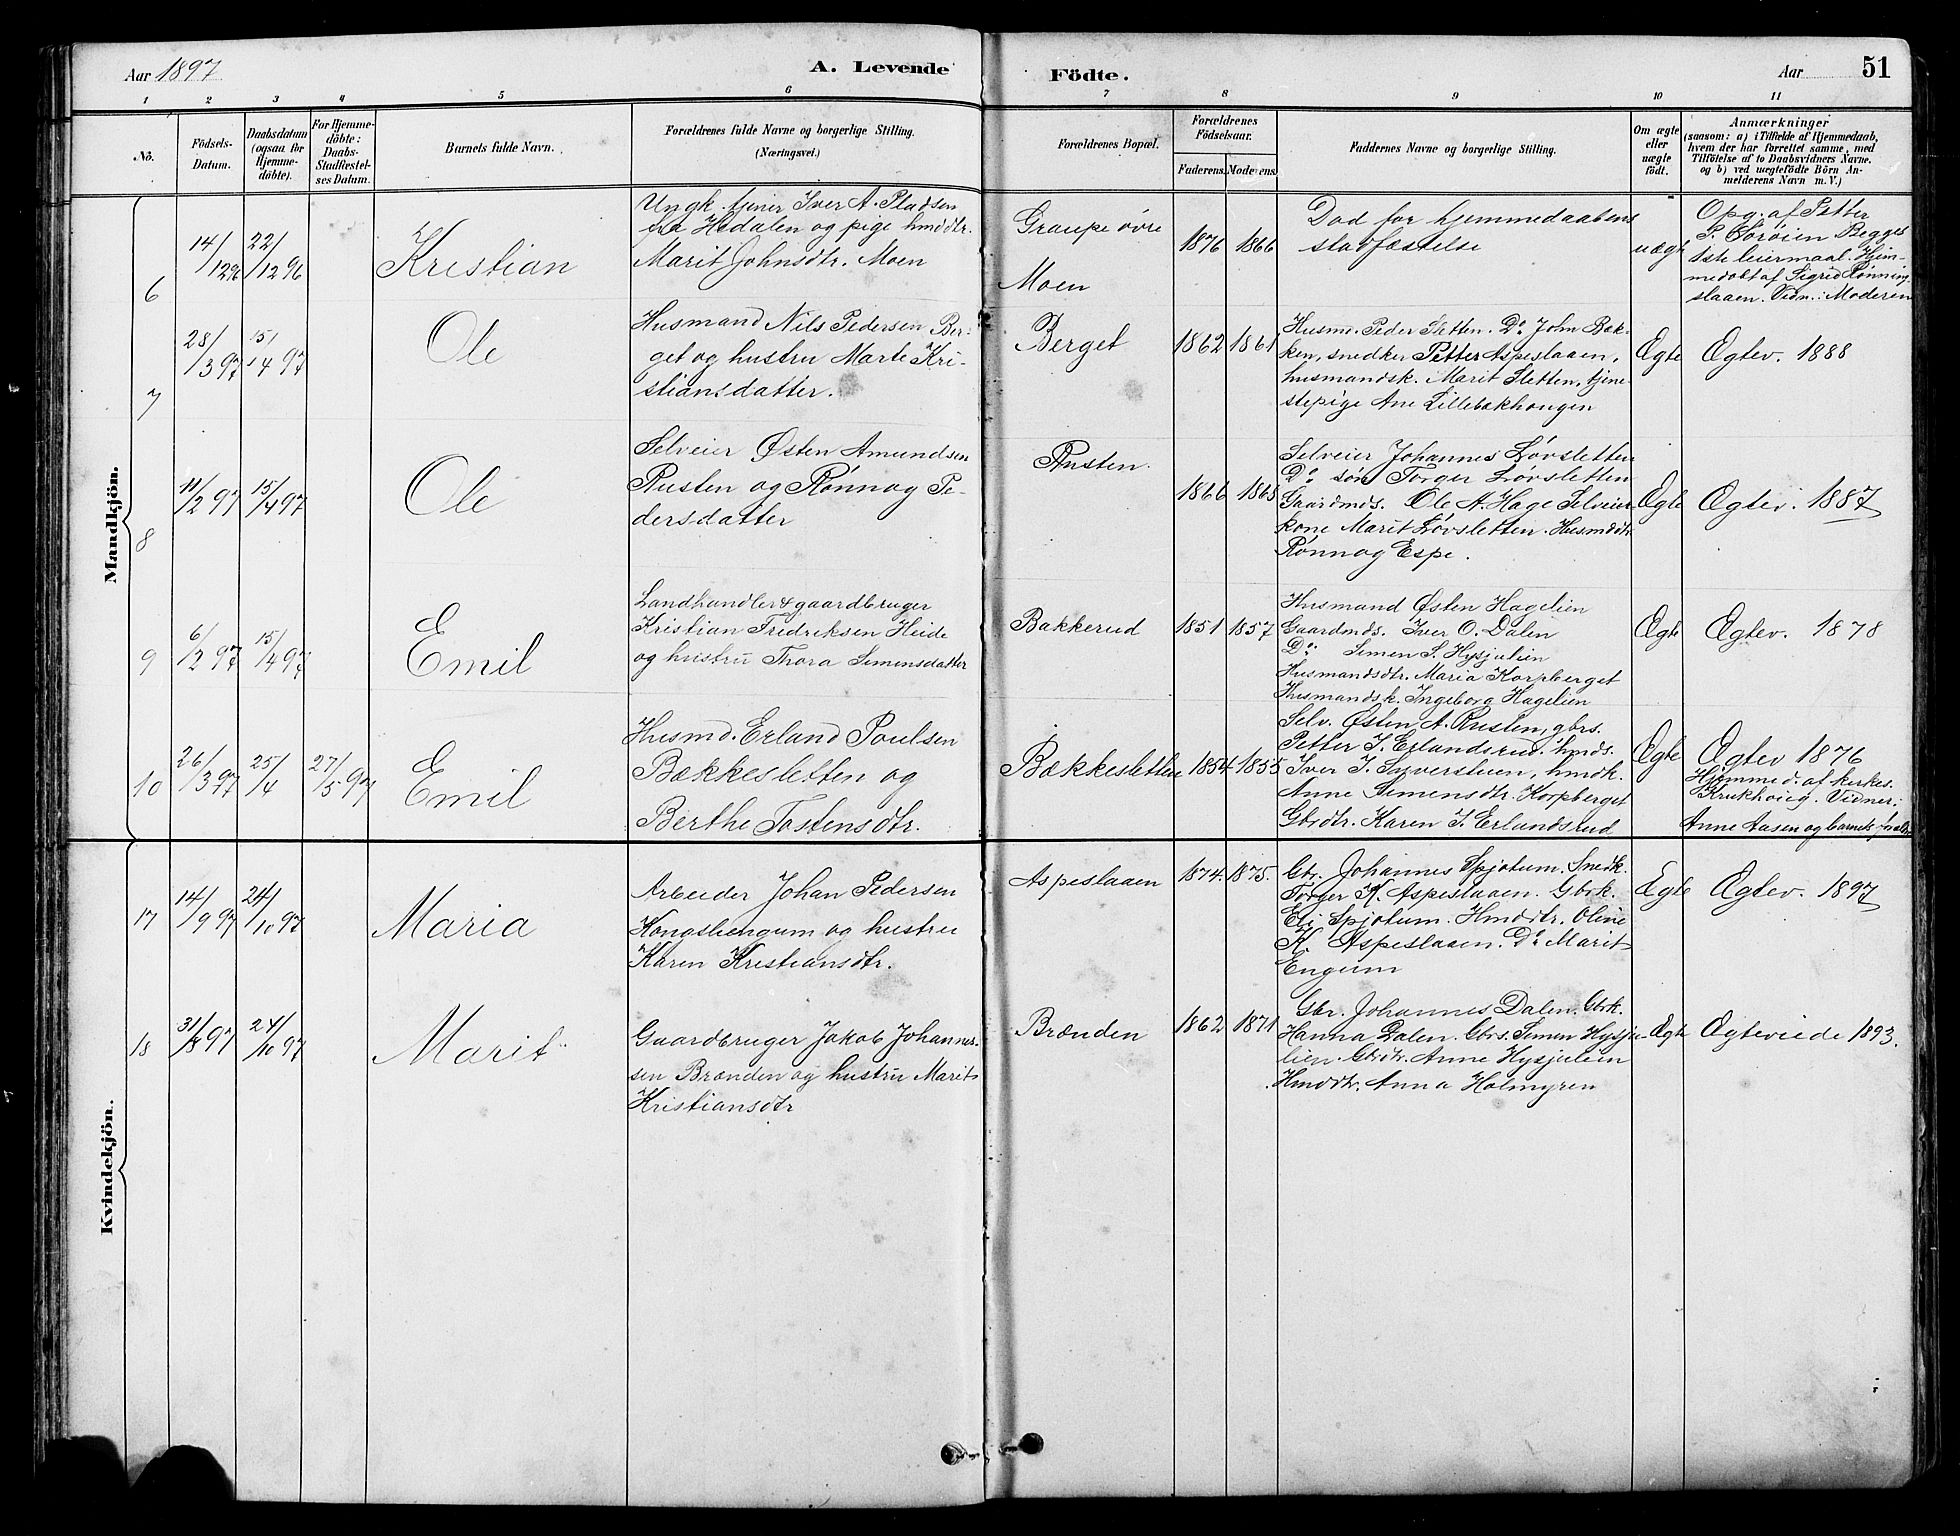 Aar 1897
A. Levende
Födte.
Aar
51
1 2 3 4 5 6 7 8 9 10 11
No.
Födsels-
Datum.
Daabsdatum
(ogsaa for
Hjemme-
döbte).
For Hjemme-
döbte:
Daabs-
Stadfæstel-
ses Datum.
Barnets fulde Navn.
Forældrenes fulde Navne og borgerlige Stilling.
(Næringsvei.)
Forældrenes Bopæl.
Forældrenes
Födselsaar.
Faderens. Moderens.
Faddernes Navne og borgerlige Stilling.
Om ægte
eller
uægte
födt.
Anmærkninger
(saasom: a) i Tilfælde af Hjemmedaab,
hvem der har forrettet samme, med
Tilföielse af to Daabsvidners Navne.
og b) ved uægtefödte Börn An-
melderens Navn m. V.)
Mandkjön.
6
14/12 96
22/12 96
Kristian
Ungk. tjener Iver A. Pladsen
fra Hedalen og pige hmddtr.
Marit Johnsdtr. Moen
Graupe øvre
Moen
1876 1866
Død før hjemmedaabens
stadfæstelse
uægt
Opg. af Petter
P. Sørøien Begges
1ste leiermaal. Hjem-
medøbt af Sigrid Rønning-
slaaen. Vidn.: Moderen
7
28/3 97
15/4 97
Ole
Husmand Nils Pedersen Ber-
get og hustru Marte Kri-
stiansdatter.
Berget
1862 1861
Husm. Peder Sletten. Do John Bak-
ken, snedker Petter Aspeslaaen,
husmandsk. Marit Sletten, tjene-
stepige Ane Lillebækhaugen
Ægte
Ægtev. 1888
8
11/2 97
15/4 97
Ole
Selveier Østen Amundsen
Rusten og Rønnog Pe-
dersdatter
Rusten.
1866 1865
Selveier Johannes Løvsletten
Do søn Torger Løvsletten
Gaardmds. Ole A. Hage Selveier-
kone Marit Løvsletten. Husmddtr.
Rønnog Espe.
Ægte
Ægtev. 1887
9
6/2 97
15/4 97
Emil
Landhandler & gaardbruger
Kristian Fredriksen Heide
og hustru Thora Simensdatter
Bakkerud
1851 1857
Husmand Østen Hagelien
Gaardmds. Iver O. Dalen
Do Simen S. Hysjulien
Husmandsdtr. Maria Korpberget
Husmandsk. Ingeborg Hagelien
Ægte
Ægtev. 1878
10
26/3 97
25/4
27/5 97
Emil
Husmd. Erland Poulsen
Bækkesletten og
Berthe Tostensdtr.
Bækkesletten
1854 1855
Selv. Østen A. Rusten, gbrs.
Petter I. Erlandsrud, hmds.
Iver I. Syversteen, hmdk.
Anne Simensdtr. Korpberget
Gbrdtr. Karen I. Erlandsrud
Ægte
Ægtev 1876
Hjemmed. af kirkes.
Krukhoieg. Vidner:
Anne Aasen og barnets forældre
Kvindekjön.
17
14/9 97
24/10 97
Maria
Arbeider Johan Pedersen
Kongsliengum og hustru
Karen Kristiansdtr.
Aspeslaaen
1874. 1875.
Gbr. Johannes Spjotum. Snedk.
Torger K. Aspeslaaen. Gbrk.
Eli Spjotum. Hmddtr. Oline
K. Aspeslaaen. Do Marit
Engum
Ægte
Ægtev. 1897
18
31/8 97
24/10 97
Marit
Gaardbruger Jakob Johannes-
sen Brænden og hustru Marit
Kristiansdtr
Brænden
1862 1871
Gbr. Johannes Dalen. Gbrk.
Hanna Dalen. Gbrs. Simen Hysju-
lien. Gbrdtr. Anne Hysjulien
Hmddtr. Anna Holmyren
Ægte
Ægteviede 1893.